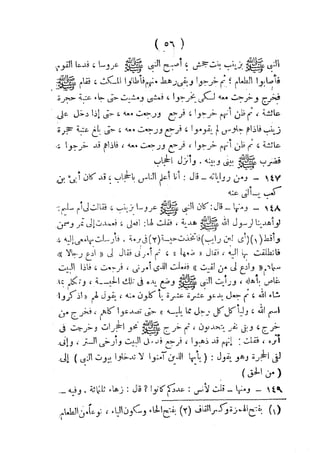 ( ٥٦ )
النبي ﷺ بزينب بنت جحش ؛ أصبح النبي ﷺ عروسا ، فدعا القوم
فأصابوا الطعام ؛ ثم خرجوا وبقى رهط منهم فأطالوا المكث ، فقام ﷺ
فخرج وخرجت معه لكى يخرجوا ، فمشى ومشيت حتى جاء عتبة حجرة
عائشة ، ثم ظن أنهم خرجوا ، فرجع ورجعت معه ، حتى إذا دخل على
زينب فإذا هم جلوس لم يقوموا ، فرجع ورجعت معه ، حتى بلغ عتبة حجرة
عائشة ، فظن أنهم خرجوا ، فرجع ورجعت معه ، فإذا هم قد خرجوا ،
فضرب ﷺ بينى وبينه . وأنزل الحجاب
١٤٧ — ومن رواياته — قال : أنا أعلم الناس بالحجاب ، قد كان أبىّ بن
كعب يسألنى عنه
١٤٨ — ومنها — قال : كان النبي ﷺ عروسا بزينب ، فقالت لى أم سليم :
لو أهدينا لرسول الله ﷺ هدية . فقلت لها : افعلى ، فعمدت إلى تمر وسمن
وأقط (١) فاتخذت حيسة (٢) فى برمة . فأرسلت بها معى إليه ،
فانطلقت بها إليه ، فقال « ضعها » ، ثم أمرنى فقال لى « ادع رجالا »
سماهم « وادع لى من لقيت » ففعلت الذى أمرنى ، فرجعت ، فإذا البيت
غاص بأهله ، ورأيت النبي ﷺ وضع يده فى تلك الحيسة ، وتكلم بما
شاء الله ، ثم جعل يدعو عشرة عشرة يأكلون منه ، يقول لهم « اذكروا
اسم الله ، وليأكل كل رجل مما يليه » حتى تصدعوا كلهم ، فخرج من
خرج ، وبقى نفر يتحدثون ، ثم خرج ﷺ نحو الحجرات وخرجت فى
أثره ، فقلت : إنهم قد ذهبوا ، فرجع فدخل البيت وأرخى الستر ، وإنى
لفى الحجرة وهو يقول : ( يأيها الذين آمنوا لا تدخلوا بيوت النبي ) إلى
( من الحق )
١٤٩ — ومنها — قلت لأنس : عددكم كانوا ؟ قال : زهاء ثلثمائة . وفيه —
(١) بفتح الهمزة وكسر القاف (٢) بفتح الحاء وسكون الياء ، نوعا من الطعام